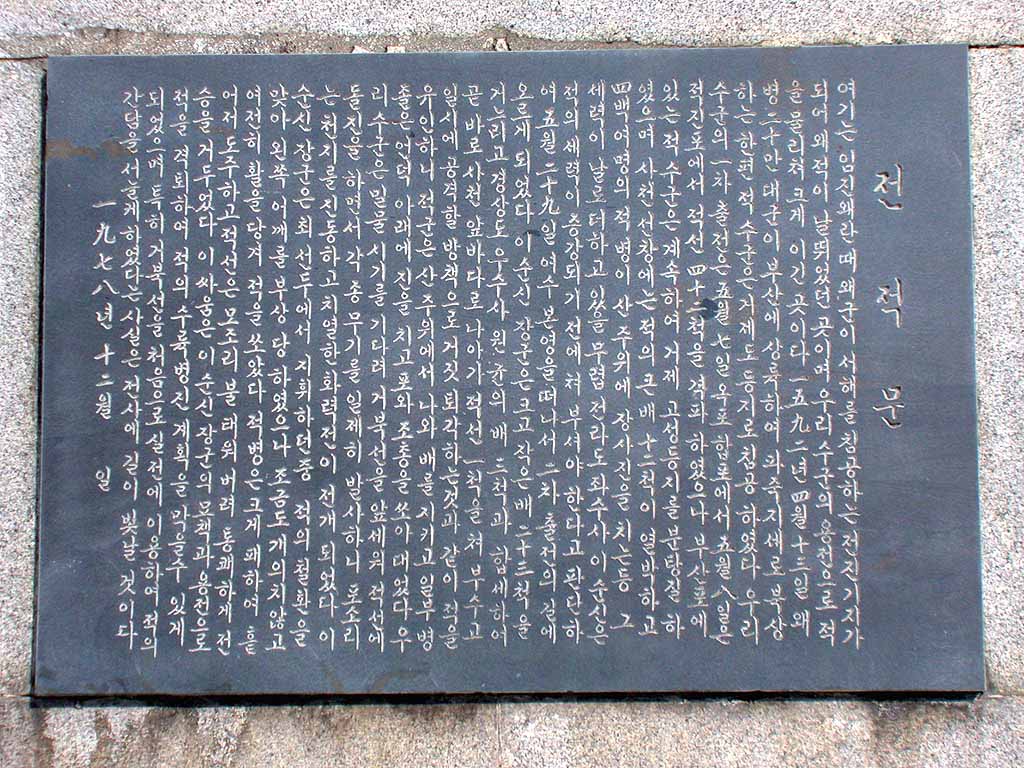 전적문
여기는 임진왜란때 왜군이 서해를 침공하는 전진기지가
되어 왜적이 날뛰었던 곳이며 우리 수군의 용전으로 적
을 물리쳐 크게 이긴 곳이다 一五九二년 四월 十三일 왜
병 二十만 대군이 부산에 상륙하여 파죽지세로 북상
하는 한편 적 수군은 거제도 등지로 침공하였다 우리
수군의 一차 출전은 五월 七일 옥포 합포에서 五월 八일은
적진포에서 적선 四十二척을 격파 하였으나 부산포에
있는 적수군은 계속하여 거제 고성등지를 분탕질 하
였으며 사천 선창에는 적의 큰배 十二척이 열박하고
四백여명의 적병이 산주위에 장사진을 치는등 그
세력이 날로 더하고 있을 무렵 전라도 좌수사 이순신은
적의 세력이 증강되기 전에 쳐부셔야 한다고 판단하
여 五월 二十九일 여수 본영을 떠나서 二차 출전의 길에
오르게 되었다 이순신 장군은 크고 작은배 二十三척을
거느리고 경상도 우수사 원균의 배 三척과 합세하여
곧 바로 사천 앞바다로 나아가 적선 一척을 쳐 부수고
일시에 공격할 방책으로 거짓 퇴각하는것과 같이 적을
유인하니 적군은 산주위에서 나와 배를 지키고 일부 병
졸은 언덕 아래에 진을 치고 포와 조총을 쏘아 대었다 우
리 수군은 밀물 시기를 기다려 거북선을 앞세워 적선에
돌진을 하면서 각종 무기를 일제히 발사하니 포소리
는 천지를 진동하고 치열한 화력전이 전개 되었다 이
순신 장군은 최 선두에서 지휘하던중 적의 철환을
맞아 왼쪽 어깨를 부상 당하였으나 조금도 개의치않고
여전히 활을 당겨 적을 쏘았다 적병은 크게 패하여 흩
어저 도주하고 적선은 모조리 불태워 버려 통쾌하게 전
승을 거두었다 이 싸움은 이순신 장군의 묘책과 용전으로
적을 격퇴하여 적의 수륙병진 계획을 막을수 있게
되었으며 특히 거북선을 처음으로 실전에 이용하여 적의
간담을 서늘게 하였다는 사실은 전사에 길이 빛날 것이다
一九七八년 十二월 일